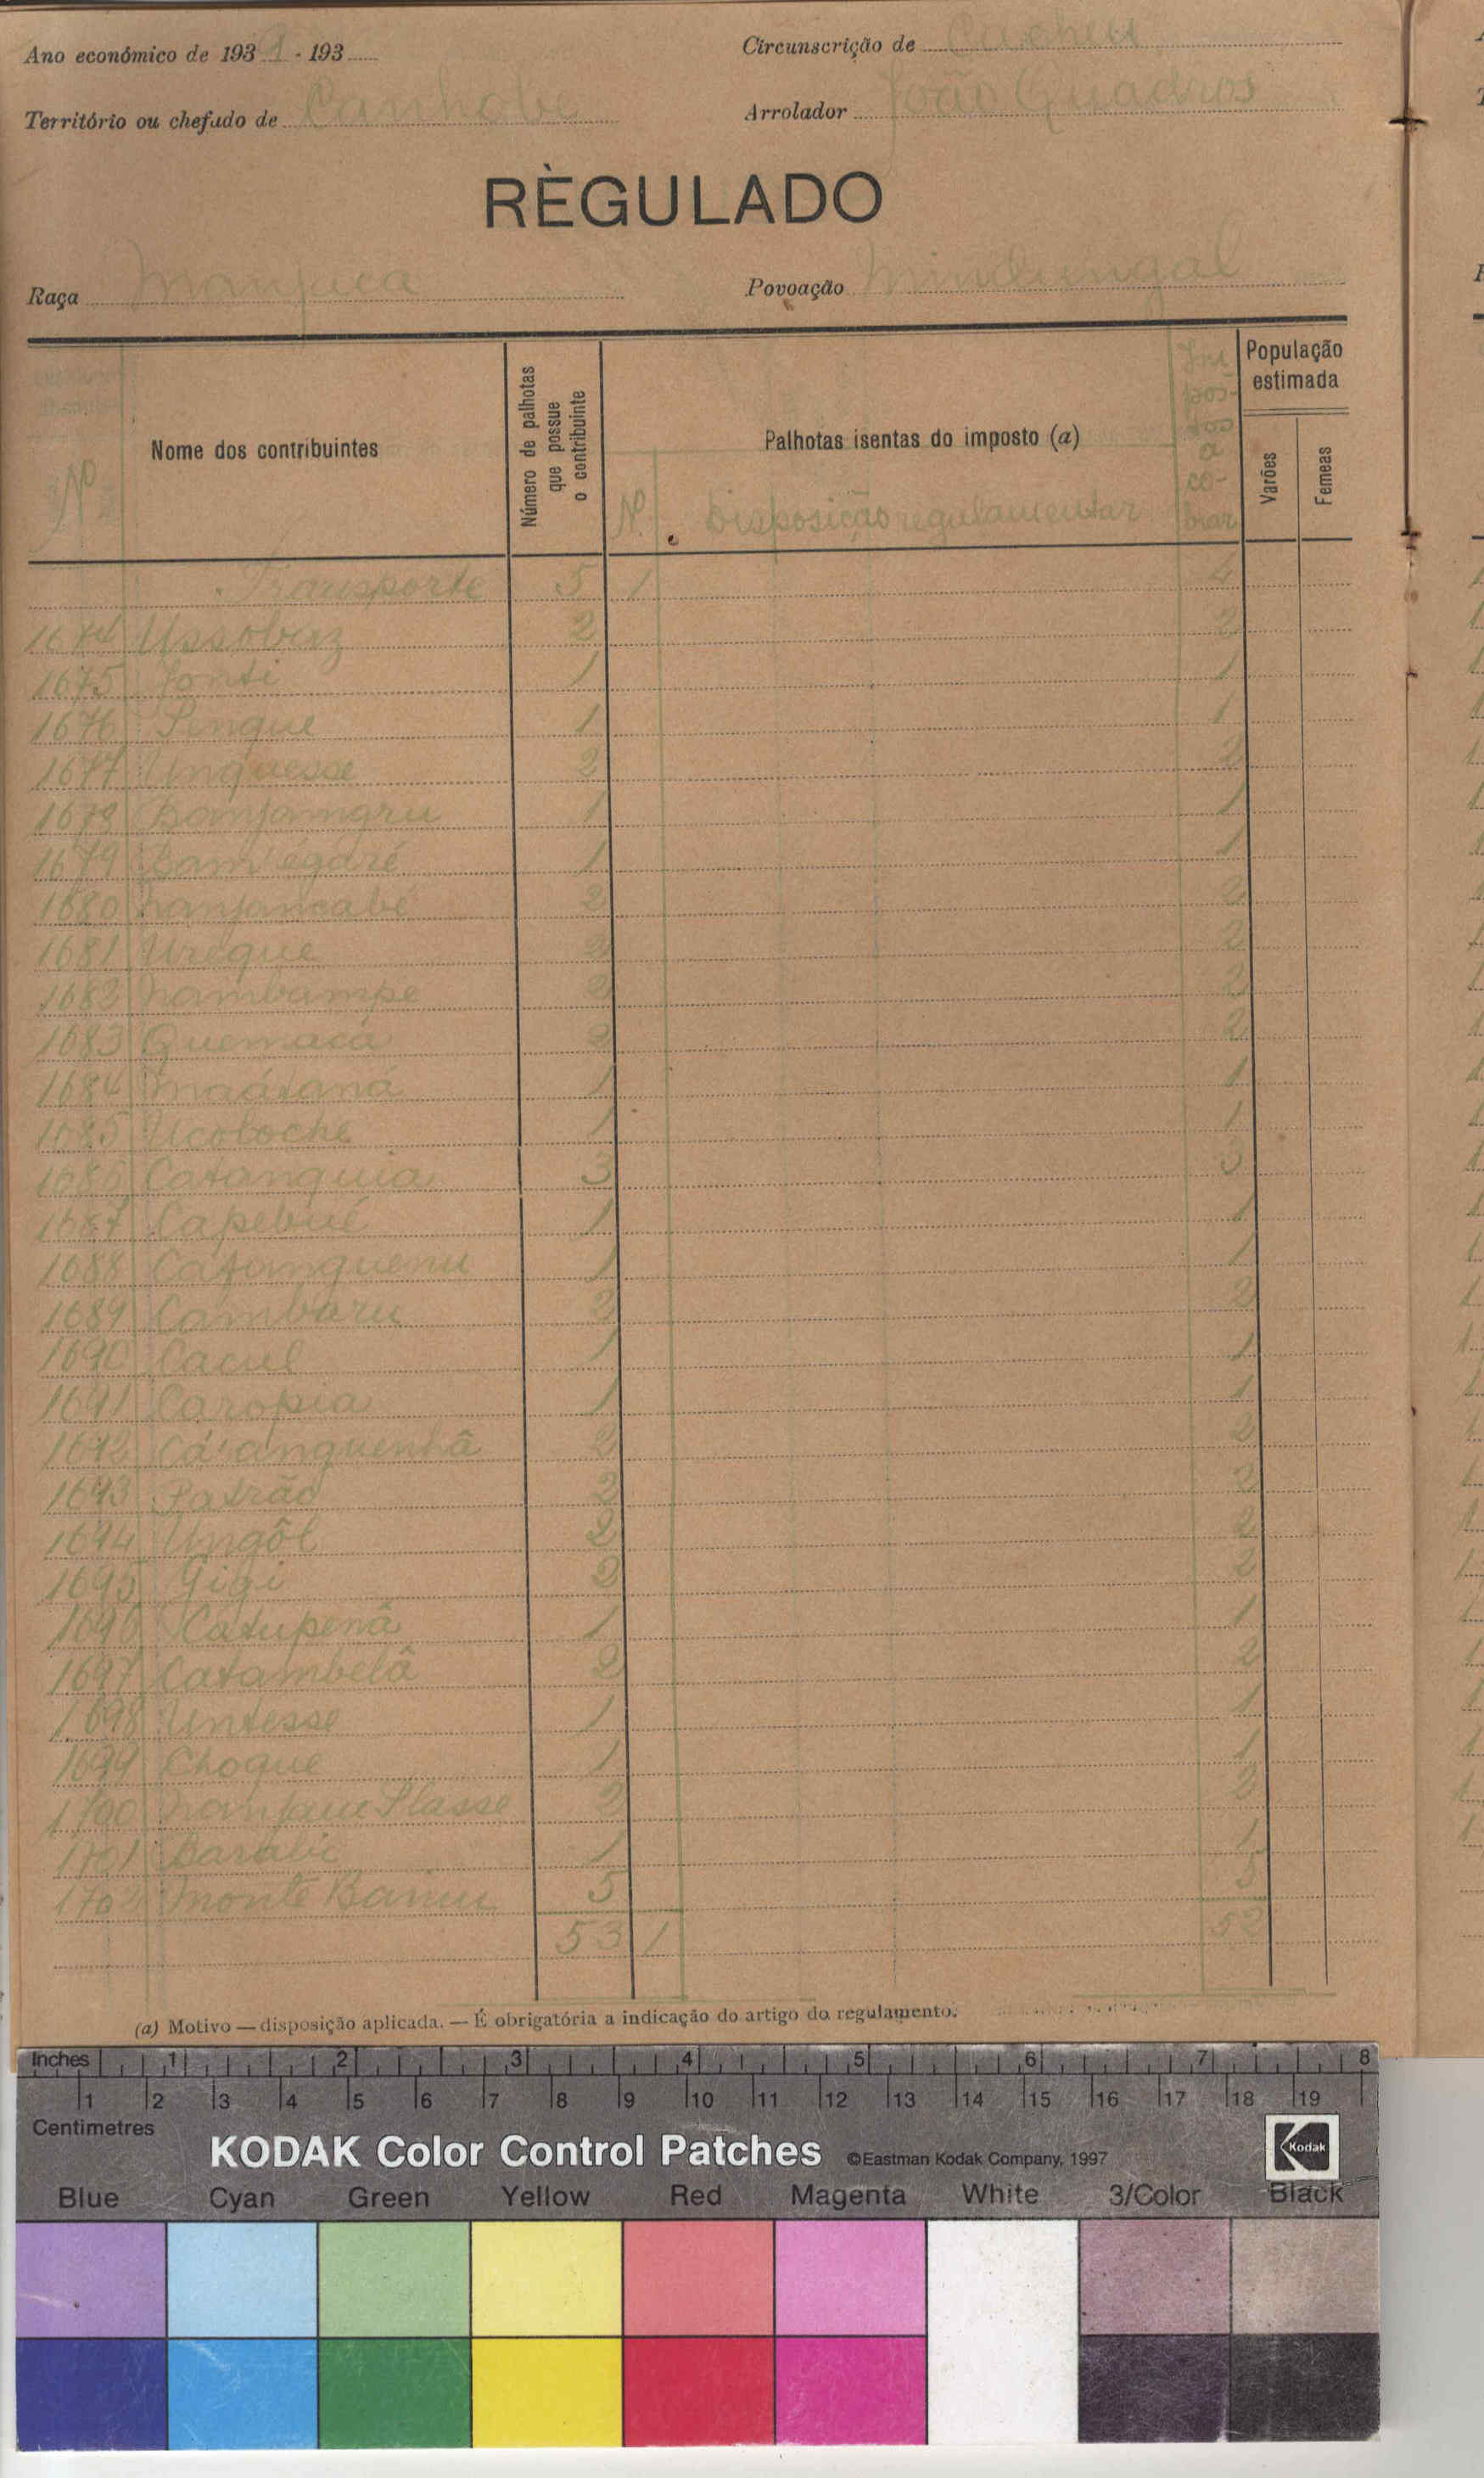 Ano económico de 193 1 - 193
Circunscrição de Cacheu
Território ou chefado de Canhobe
Arrolador João Quadros
RÈGULADO
Raça Manjaca
Povoação
Nº
Nome dos contribuintes
Número de palhotas que possue o contribuinte
Palhotas isentas do imposto (a)
N.
Disposição regulamentar
Impostos a cobrar
População estimada
Varões
Femeas
Transporte 5 1 4
1674 2 2
1675 Jonti 1 1
1676 Pengue 1 1
1677 Unquesse 2 2
1678 1 1
1679 1 1
1680 2 2
1681 Ureque 2 2
1682 Nambampe 2 2
1683 Quemacá 2 2
1684 1 1
1685 Ucoloche 1 1
1686 Catanquia 3 3
1687 Capebué 1 1
1688 Catanguenu 1 1
1689 Cambaru 2 2
1690 Cacul 1 1
1691 Caropia 1 1
1692 Catanguenhâ 2 2
1693 Patrão 2 2
1694 Ungôl 2 2
1695 Gigi 2 2
1696 Catupenâ 1 1
1697 Catambelâ 2 2
1698 Untesse 1 1
1699 Choque 1 1
1700 2 2
1701 1 1
1702 5 5
53 1 52
(a) Motivo — disposição aplicada. — É obrigatória a indicação do artigo do regulamento.
Inches 1 2 3 4 5 6 7 8
1 2 3 4 5 6 7 8 9 10 11 12 13 14 15 16 17 18 19
Centimetres
KODAK Color Control Patches ©Eastman Kodak Company, 1997
Kodak
Blue Cyan Green Yellow Red Magenta White 3/Color Black